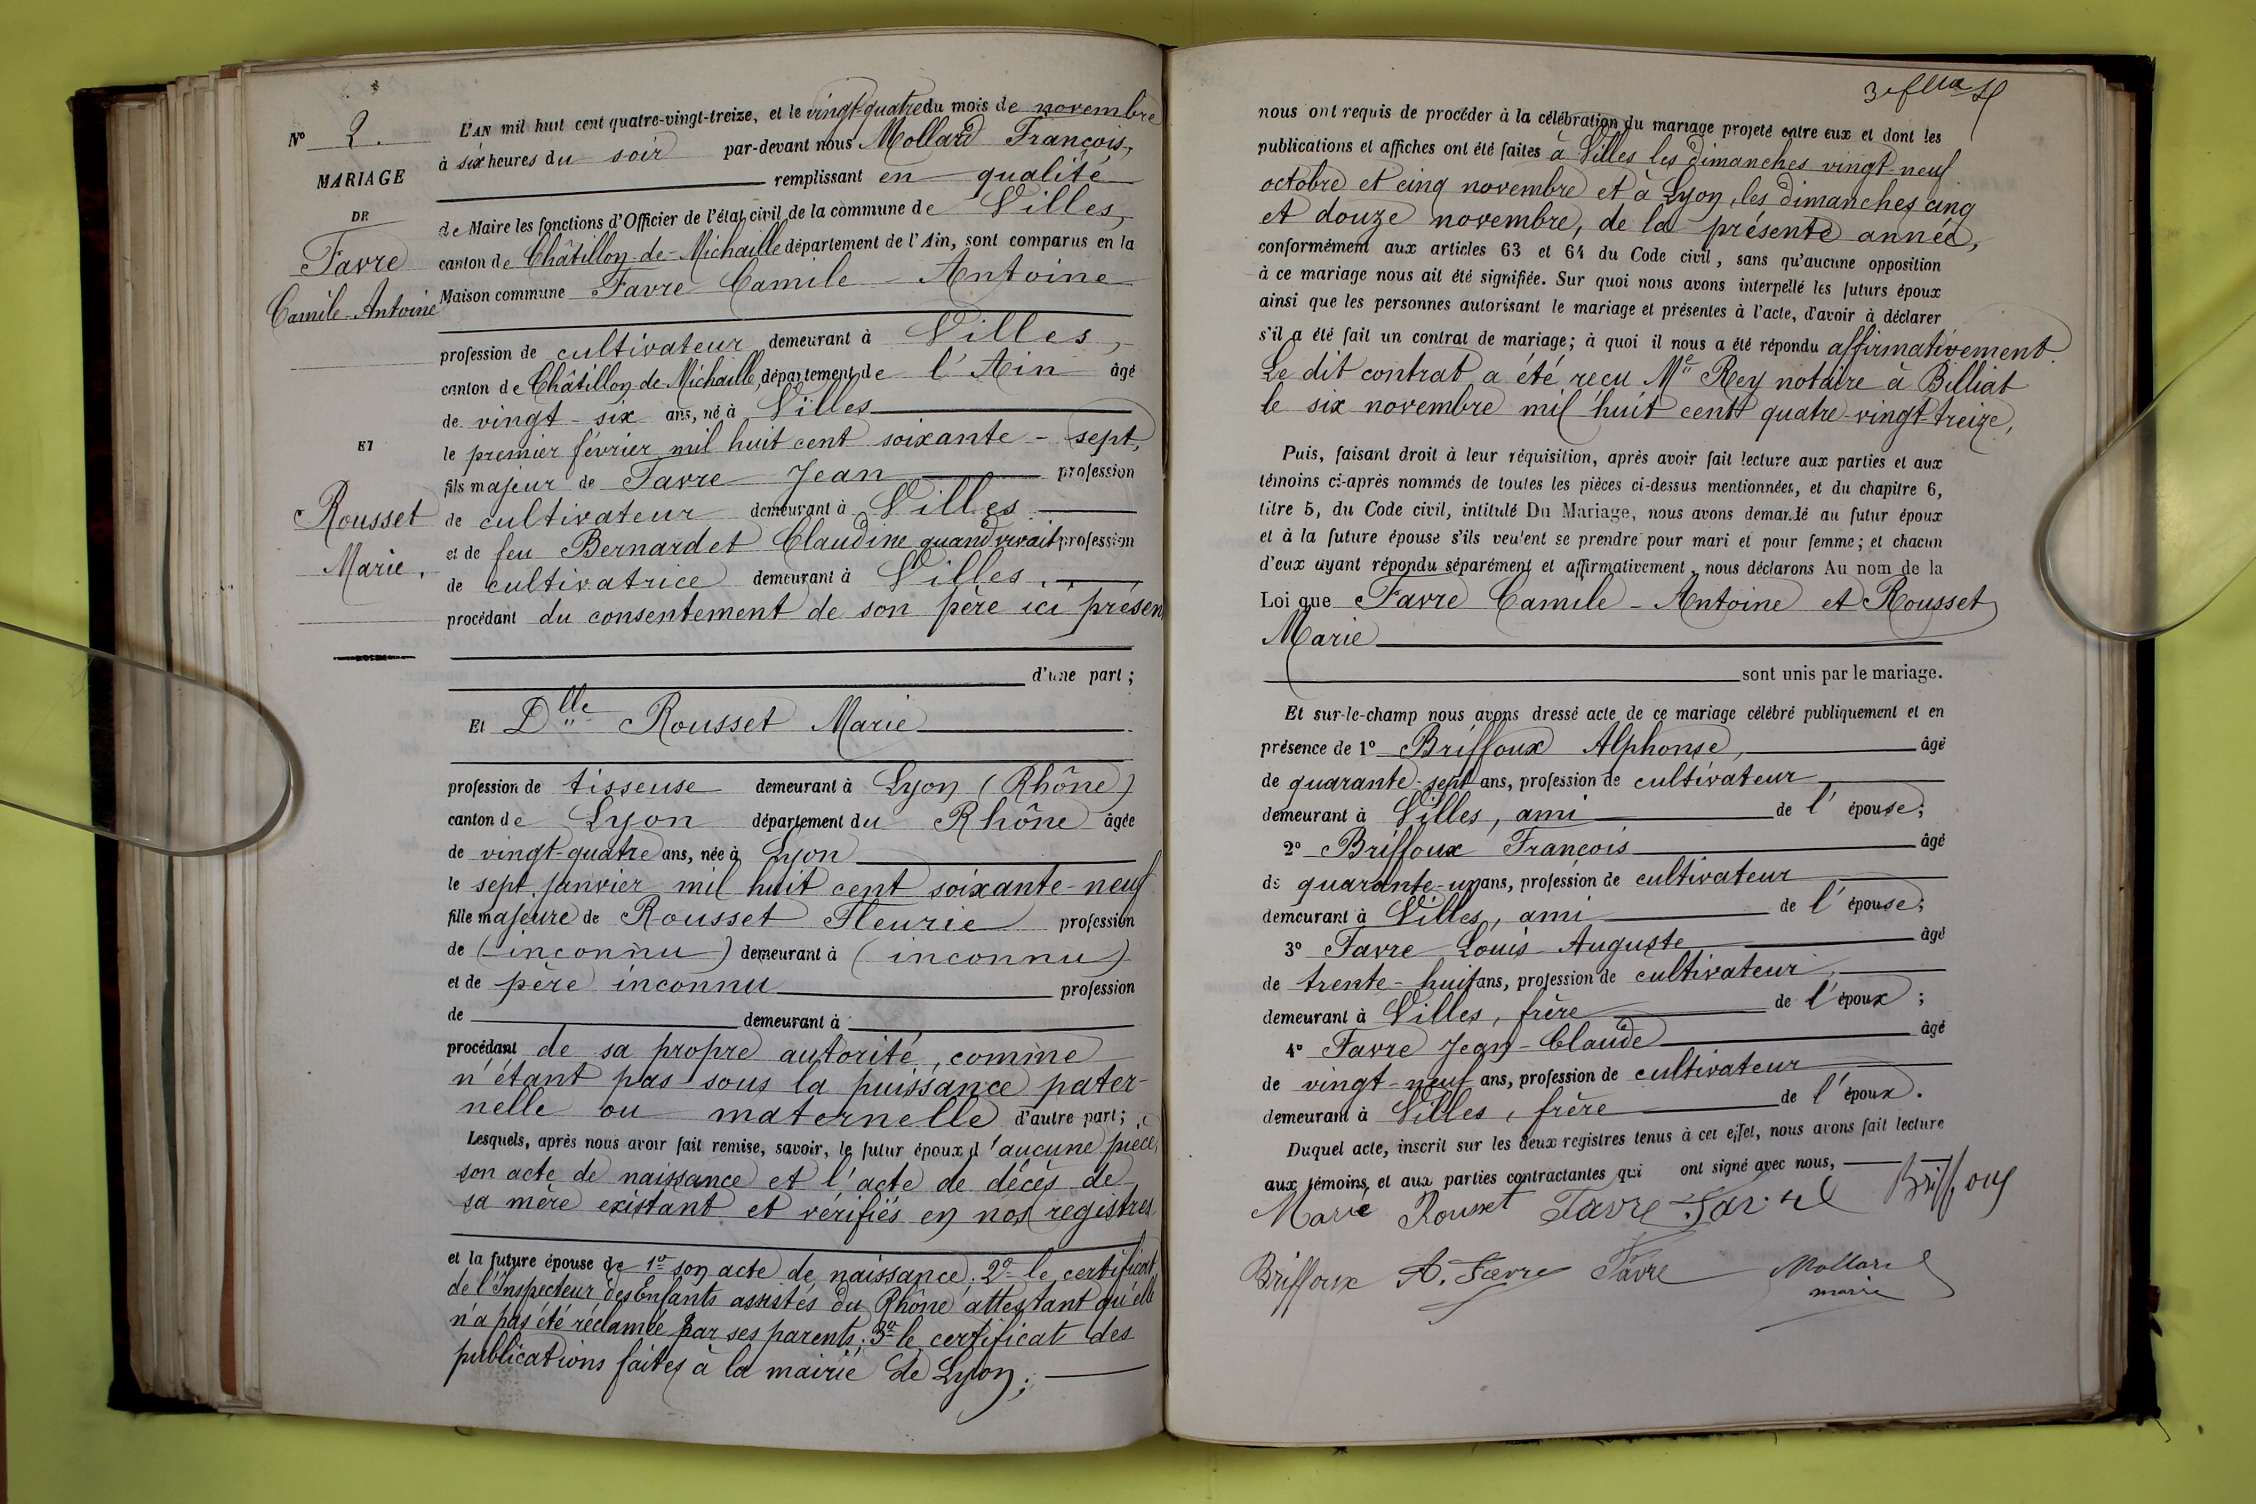 Nº 2.
MARIAGE
DE
Favre
Camile-Antoine
ET
Rousset
Marie.
L'AN mil huit cent quatre-vingt-treize, et le vingt-quatre du mois de novembre
à six heures du soir par-devant nous Mollard François,
remplissant en qualité
de Maire les fonctions d'Officier de l'état civil de la commune de Villes,
canton de Châtillon-de-Michaille département de l'Ain, sont comparus en la
Maison commune Favre Camile-Antoine
profession de cultivateur demeurant à Villes,
canton de Châtillon-de-Michaille, département de l'Ain âgé
de vingt-six ans, né à Villes
le premier février mil huit cent soixante-sept,
fils majeur de Favre Jean profession
de cultivateur demeurant à Villes
et de feu Bernardet Claudine quand vivait profession
de cultivatrice demeurant à Villes.
procédant du consentement de son père ici présent
d'une part;
Et Dlle Rousset Marie
profession de tisseuse demeurant à Lyon (Rhône)
canton de Lyon département du Rhône âgée
de vingt-quatre ans, née à Lyon
le sept janvier mil huit cent soixante-neuf
fille majeure de Rousset Fleurie profession
de (inconnu) demeurant à (inconnu)
et de père inconnu profession
de demeurant à
procédant de sa propre autorité, comme
n'étant pas sous la puissance pater-
nelle ou maternelle d'autre part;
Lesquels, après nous avoir fait remise, savoir, le futur époux d'aucune pièce,
son acte de naissance et l'acte de décès de
sa mère existant et vérifiés en nos registres
et la future épouse de 1º son acte de naissance; 2º le certificat
de l'Inspecteur des Enfants assistés du Rhône attestant qu'elle
n'a pas été réclamée par ses parents; 3º le certificat des
publications faites à la mairie de Lyon;
nous ont requis de procéder à la célébration du mariage projeté entre eux et dont les
publications et affiches ont été faites à Villes les dimanches vingt-neuf
octobre et cinq novembre et à Lyon, les dimanches cinq
et douze novembre, de la présente année,
conformément aux articles 63 et 64 du Code civil, sans qu'aucune opposition
à ce mariage nous ait été signifiée. Sur quoi nous avons interpellé les futurs époux
ainsi que les personnes autorisant le mariage et présentes à l'acte, d'avoir à déclarer
s'il a été fait un contrat de mariage; à quoi il nous a été répondu affirmativement.
Le dit contrat a été reçu Me Rey notaire à Billiat
le six novembre mil huit cent quatre-vingt-treize,
Puis, faisant droit à leur réquisition, après avoir fait lecture aux parties et aux
témoins ci-après nommés de toutes les pièces ci-dessus mentionnées, et du chapitre 6,
titre 5, du Code civil, intitulé Du Mariage, nous avons demandé au futur époux
et à la future épouse s'ils veulent se prendre pour mari et pour femme; et chacun
d'eux ayant répondu séparément et affirmativement, nous déclarons Au nom de la
Loi que Favre Camile-Antoine et Rousset
Marie
sont unis par le mariage.
Et sur-le-champ nous avons dressé acte de ce mariage célébré publiquement et en
présence de 1º Briffoux Alphonse, âgé
de quarante-sept ans, profession de cultivateur
demeurant à Villes, ami de l'épouse;
2º Briffoux François âgé
de quarante-un ans, profession de cultivateur
demeurant à Villes, ami de l'épouse;
3º Favre Louis Auguste âgé
de trente-huit ans, profession de cultivateur,
demeurant à Villes, frère de l'époux;
4º Favre Jean-Claude âgé
de vingt-neuf ans, profession de cultivateur
demeurant à Villes, frère de l'époux.
Duquel acte, inscrit sur les deux registres tenus à cet effet, nous avons fait lecture
aux témoins et aux parties contractantes qui ont signé avec nous,
Marie Rousset Favre Briffoux
Briffoux A. Favre Favre Mollard
maire